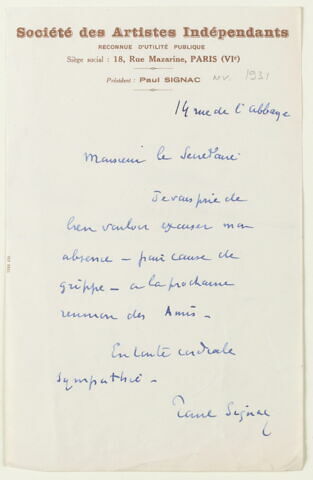 Société des Artistes Indépendants
RECONNUE D'UTILITÉ PUBLIQUE
Siège social : 18, Rue Mazarine, PARIS (VIe)
Président : Paul SIGNAC
NV. 1931
14 rue de l'abbaye
Monsieur le Secrétaire
Je vous prie de
bien vouloir excuser mon
absence – pour cause de
grippe – a la prochaine
reunion des Amis –
En toute cordiale
sympathie –
Paul Signac